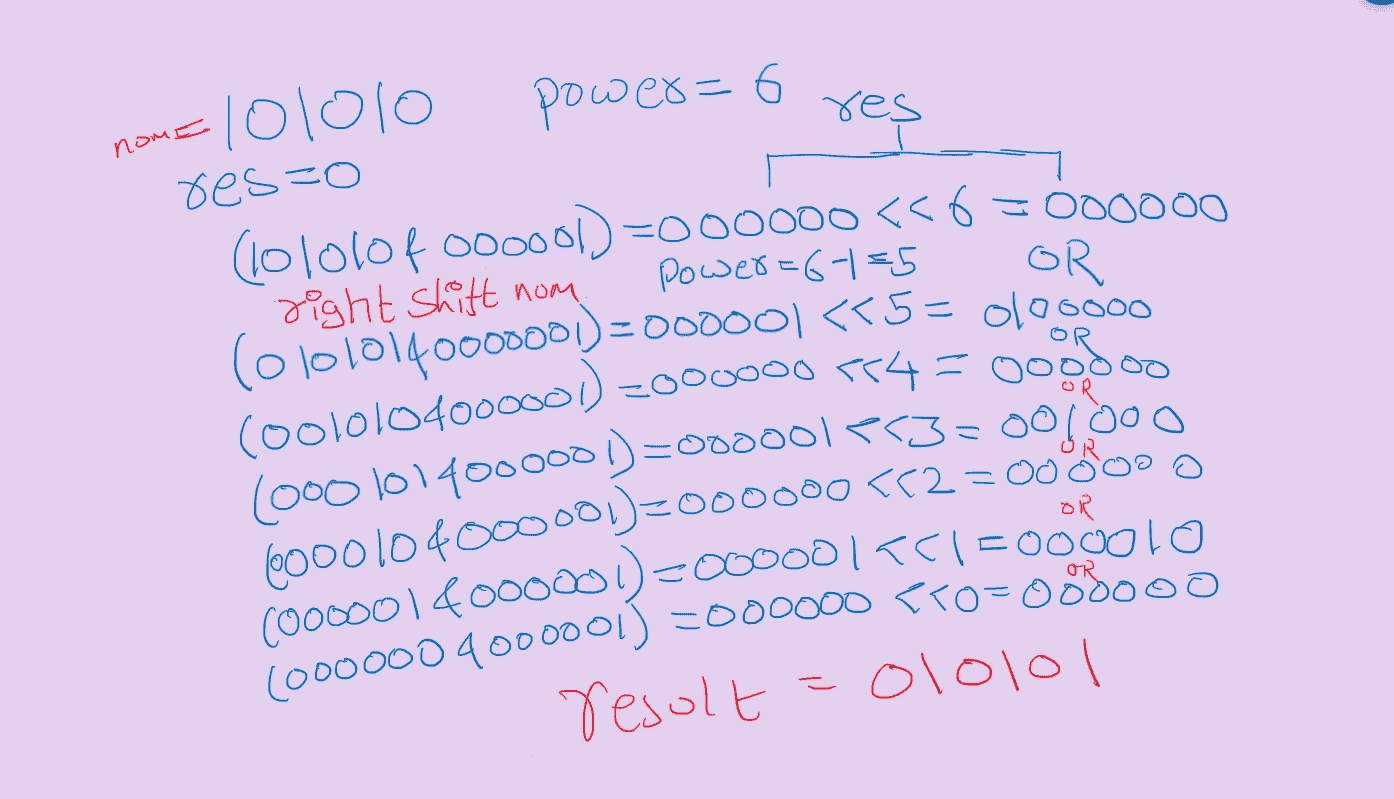 nom = 101010 power = 6
res = 0
res
(101010 & 000001) = 000000 << 6 = 000000
power = 6-1 = 5 OR
right shift nom
(010101 & 0000001) = 000001 << 5 = 0100000
OR
(001010 & 000001) = 000000 << 4 = 000000
OR
(000101 & 000001) = 000001 << 3 = 001000
OR
(000010 & 000001) = 000000 << 2 = 000000
OR
(000001 & 000001) = 000001 << 1 = 000010
OR
(000000 & 000001) = 000000 << 0 = 000000
result = 010101